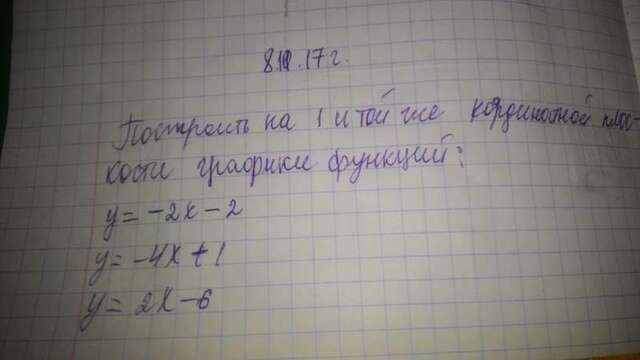 8 10.17 г.
Построить на 1 и той же кординатной плос-
кости графики функций:
y = -2x - 2
y = -4x + 1
y = 2x - 6